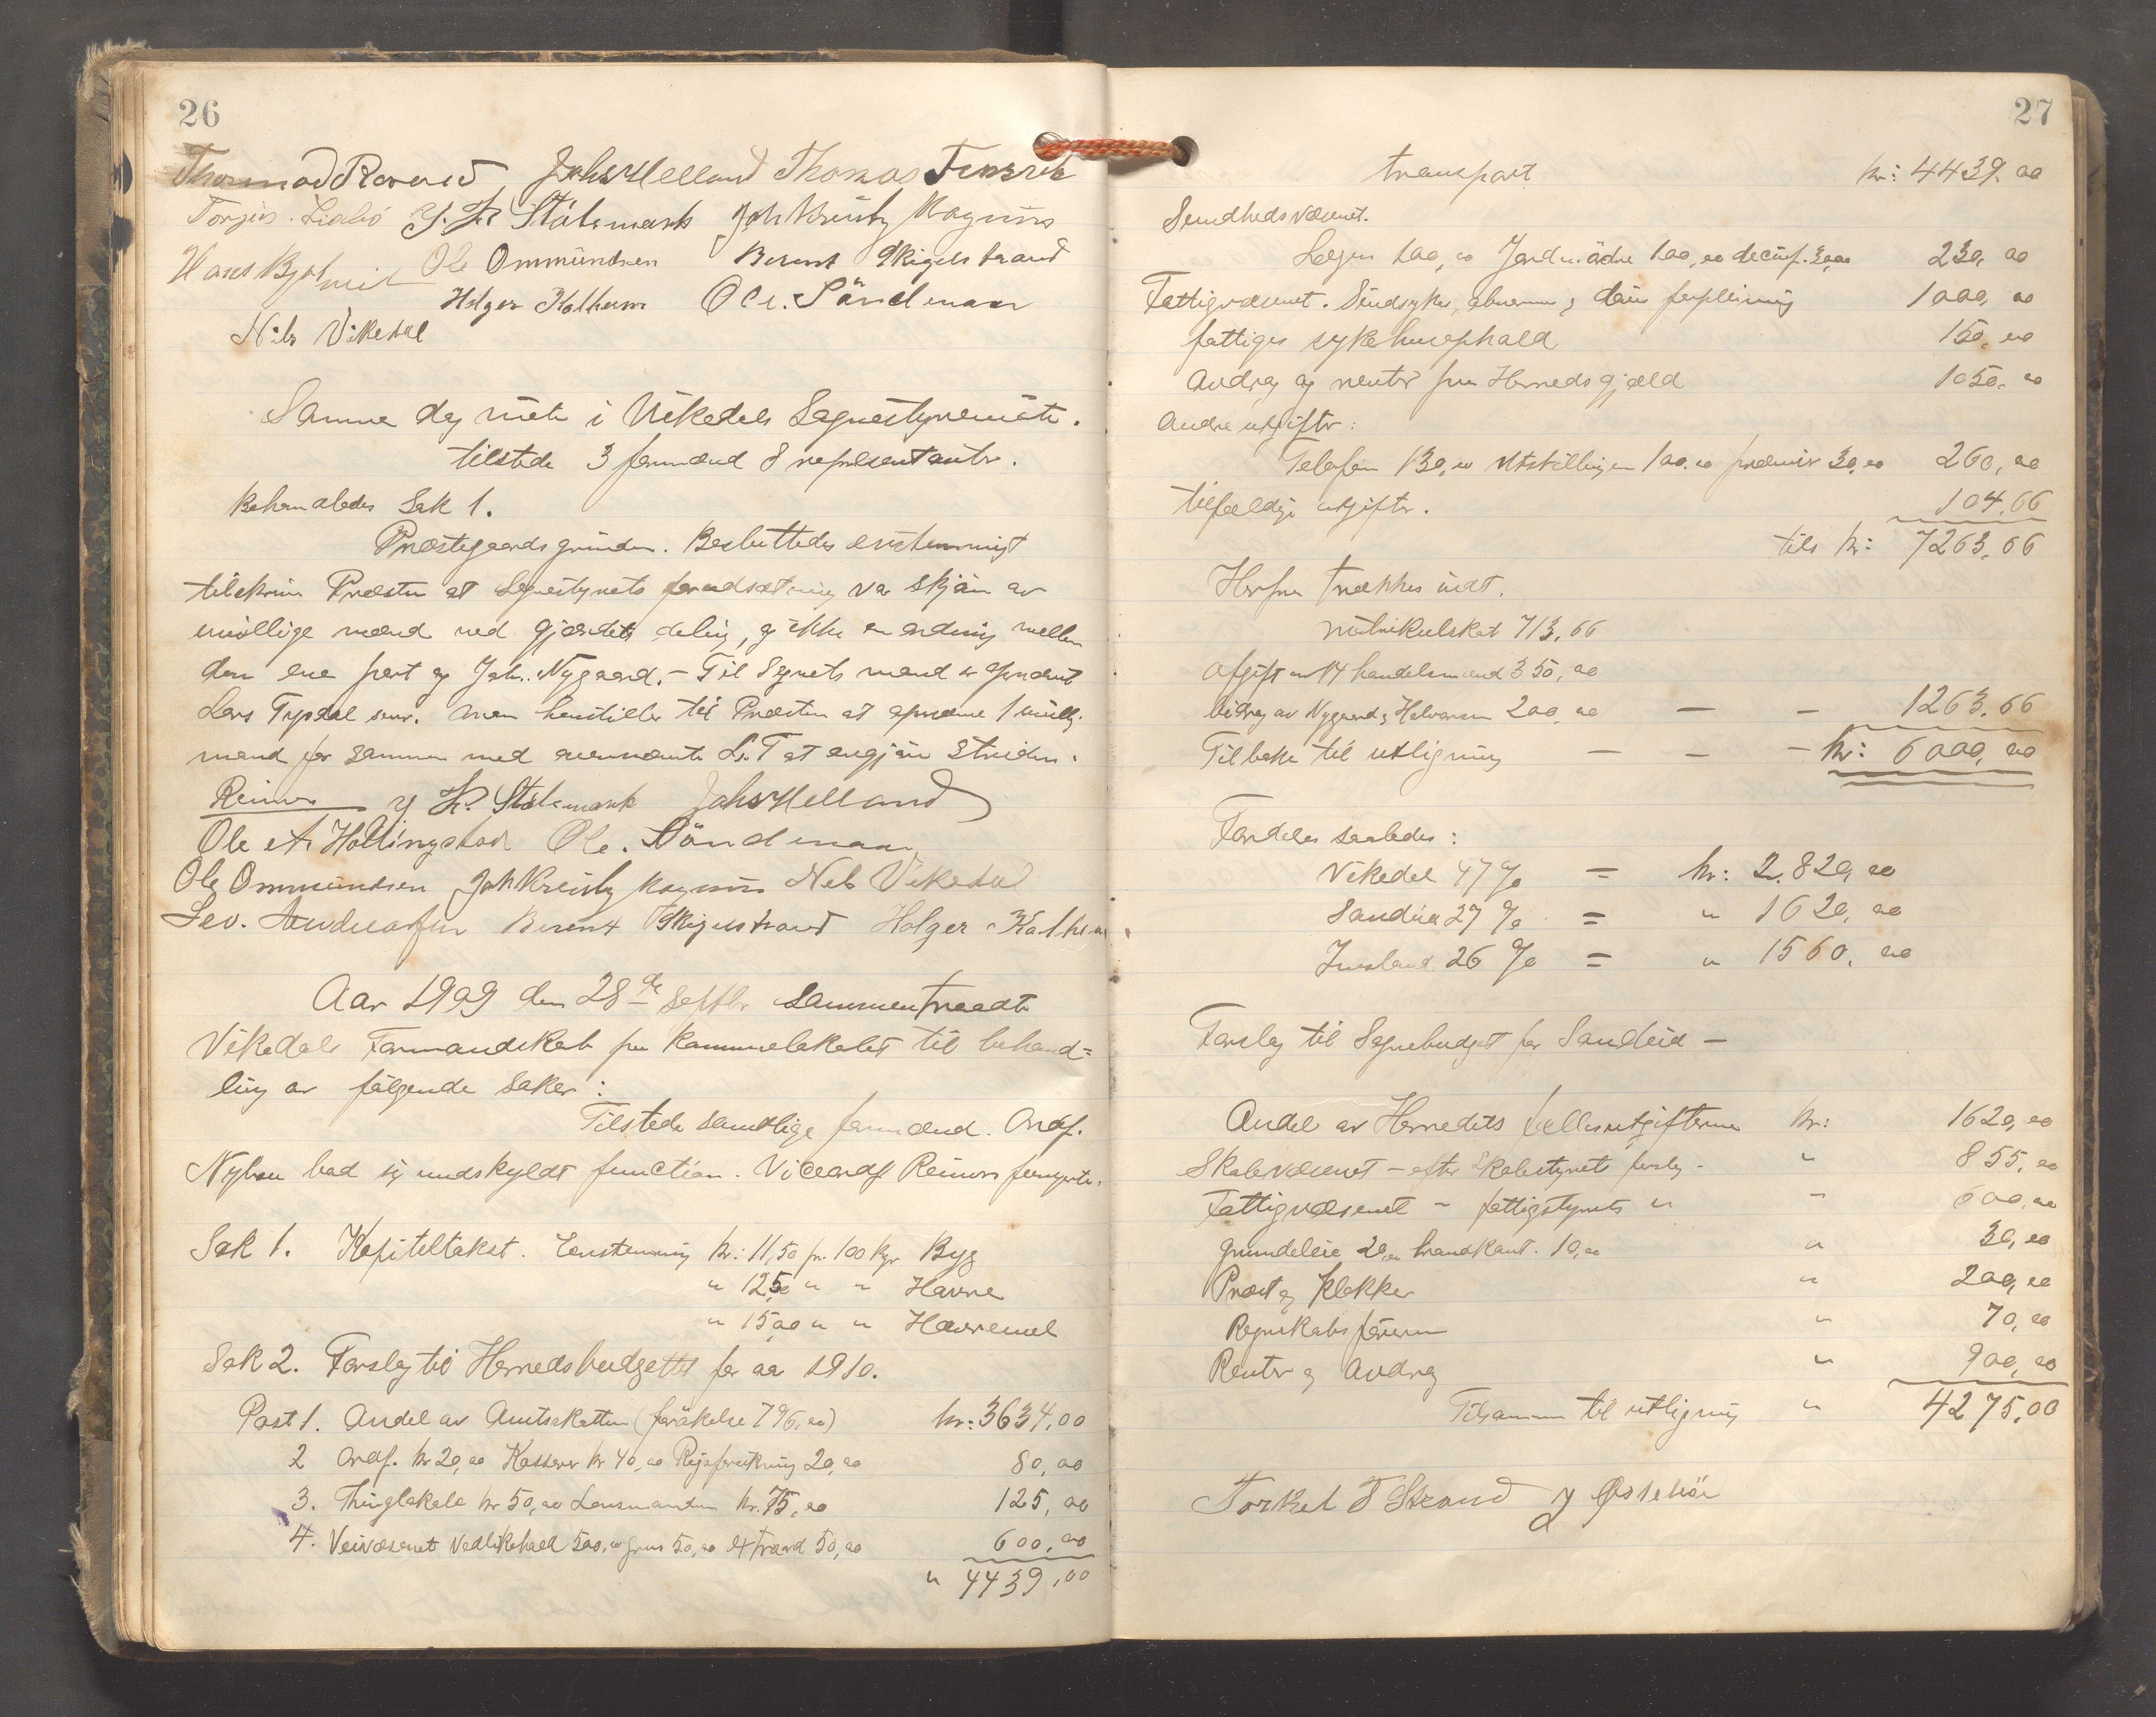 26
Thormod Rovand Johs Helland Thomas
Torger Liabö Y. H. Stålsmark Joh Kreisby Magnus
Hans Ole Ommundsen Berent Skigelstrand
Holger Kolheim Ole. Söndenaa
Nils Vikedal
Samme dag møte i Vikedals Sognestyremöte.
tilstede 3 formænd 8 repræsentanter.
Behandledes Sak 1.
Præstegaards grinden. Besluttedes enstemmigt
tilskrive Præsten at Sognestyrets forudsætning var skjön av
uvillige mænd ved gjærdets deling, og ikke en ordning mellem
den ene part og Joh. Nygaard. – Til Sognets mand er opnævnt
Lars Trysdal senr. Man henstiller til Præsten at opnævne 1 uvillig
mand for sammen med ovennævnte L. T at avgjöre Striden.
Reinvs Y H. Stålsmark Johs Helland
Ole A. Hollingstad Ole. Söndenaa
Ole Ommundsen Joh Kreisby Magnus Nils Vikedal
Sev. Andreassen Berent Skigelstrand Holger Kolheim
Aar 1909 den 28de Septbr sammentraadte
Vikedals Formandskab paa Kommunelokalet til behand=
ling av følgende saker:
Tilstede samtlige formænd. Ordf.
Nyboe bad sig undskyldt function. Viceordf Reinvs fungerte.
Sak 1. Kapiteltakst. Enstemmig kr: 11,50 pr. 100 kgr Byg
" 12,50 " " Havre
" 15,00 " " Havremel
Sak 2. Forslag til Herredsbudgettet for aar 1910.
Post 1. Andel av Amtsskatten (forökelse 796,00) kr: 3634,00
2 Ordf. kr 20,00 Kasserer kr 40,00 20,00 80,00
3. Thinglokale kr 50,00 Lensmanden kr. 75,00 125,00
4. Veivæsenet Vedlikehold 500,00 grus 50,00 50,00 600,00
" 4439,00
27
transport kr: 4439.00
Sundhedsvæsenet.
Lægen 100,00 Jordmödre 100,00 decinf. 30,00 230,00
Fattigvæsenet. Sindsyke, abnorme og forpleining 1000,00
fattiges sykehusophold 150,00
Avdrag og renter paa Herredsgjæld 1050,00
Andre utgifter:
Telefon 130,00 Utstillingen 100,00 præmier 30,00 260,00
tilfældige utgifter. 104.66
tils kr: 7263.66
Herfra trækkes indt.
matrikulskat 713,66
Afgift av 14 handelsmænd 350,00
bidrag av Nygaard & Halvorsen 200,00 – – 1263.66
Tilbake til utligning – – – kr: 6000,00
Fordeles saaledes:
Vikedal 47 % = kr: 2.820,00
Sandeid 27 % = " 1620,00
Imsland 26 % = " 1560,00
Forslag til Sognebudget for Sandeid –
Andel av Herredets fællesutgifterne kr: 1620,00
Skolevæsenet – efter Skolestyrets forslag – " 855,00
Fattigvæsenet – fattigstyrets " " 600,00
Grundeleie 20,00 brandkont. 10,00 " 30,00
Præst og Klokker " 200,00
Regnskabsföreren " 70,00
Renter og Avdrag " 900,00
Tilsammen til utligning " 4275,00
Torkel T Strand Y Østebö